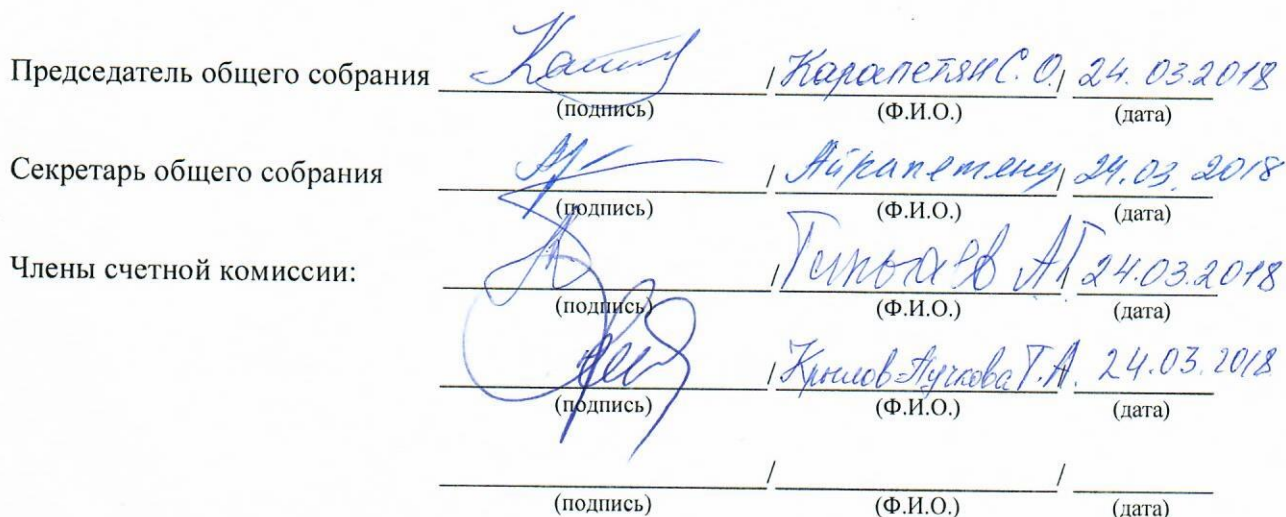 Председатель общего собрания / Карапетян С.О. / 24.03.2018
(подпись) (Ф.И.О.) (дата)
Секретарь общего собрания / / 24.03.2018
(подпись) (Ф.И.О.) (дата)
Члены счетной комиссии: / А.Г. / 24.03.2018
(подпись) (Ф.И.О.) (дата)
/ Т.А. 24.03.2018
(подпись) (Ф.И.О.) (дата)
/ /
(подпись) (Ф.И.О.) (дата)